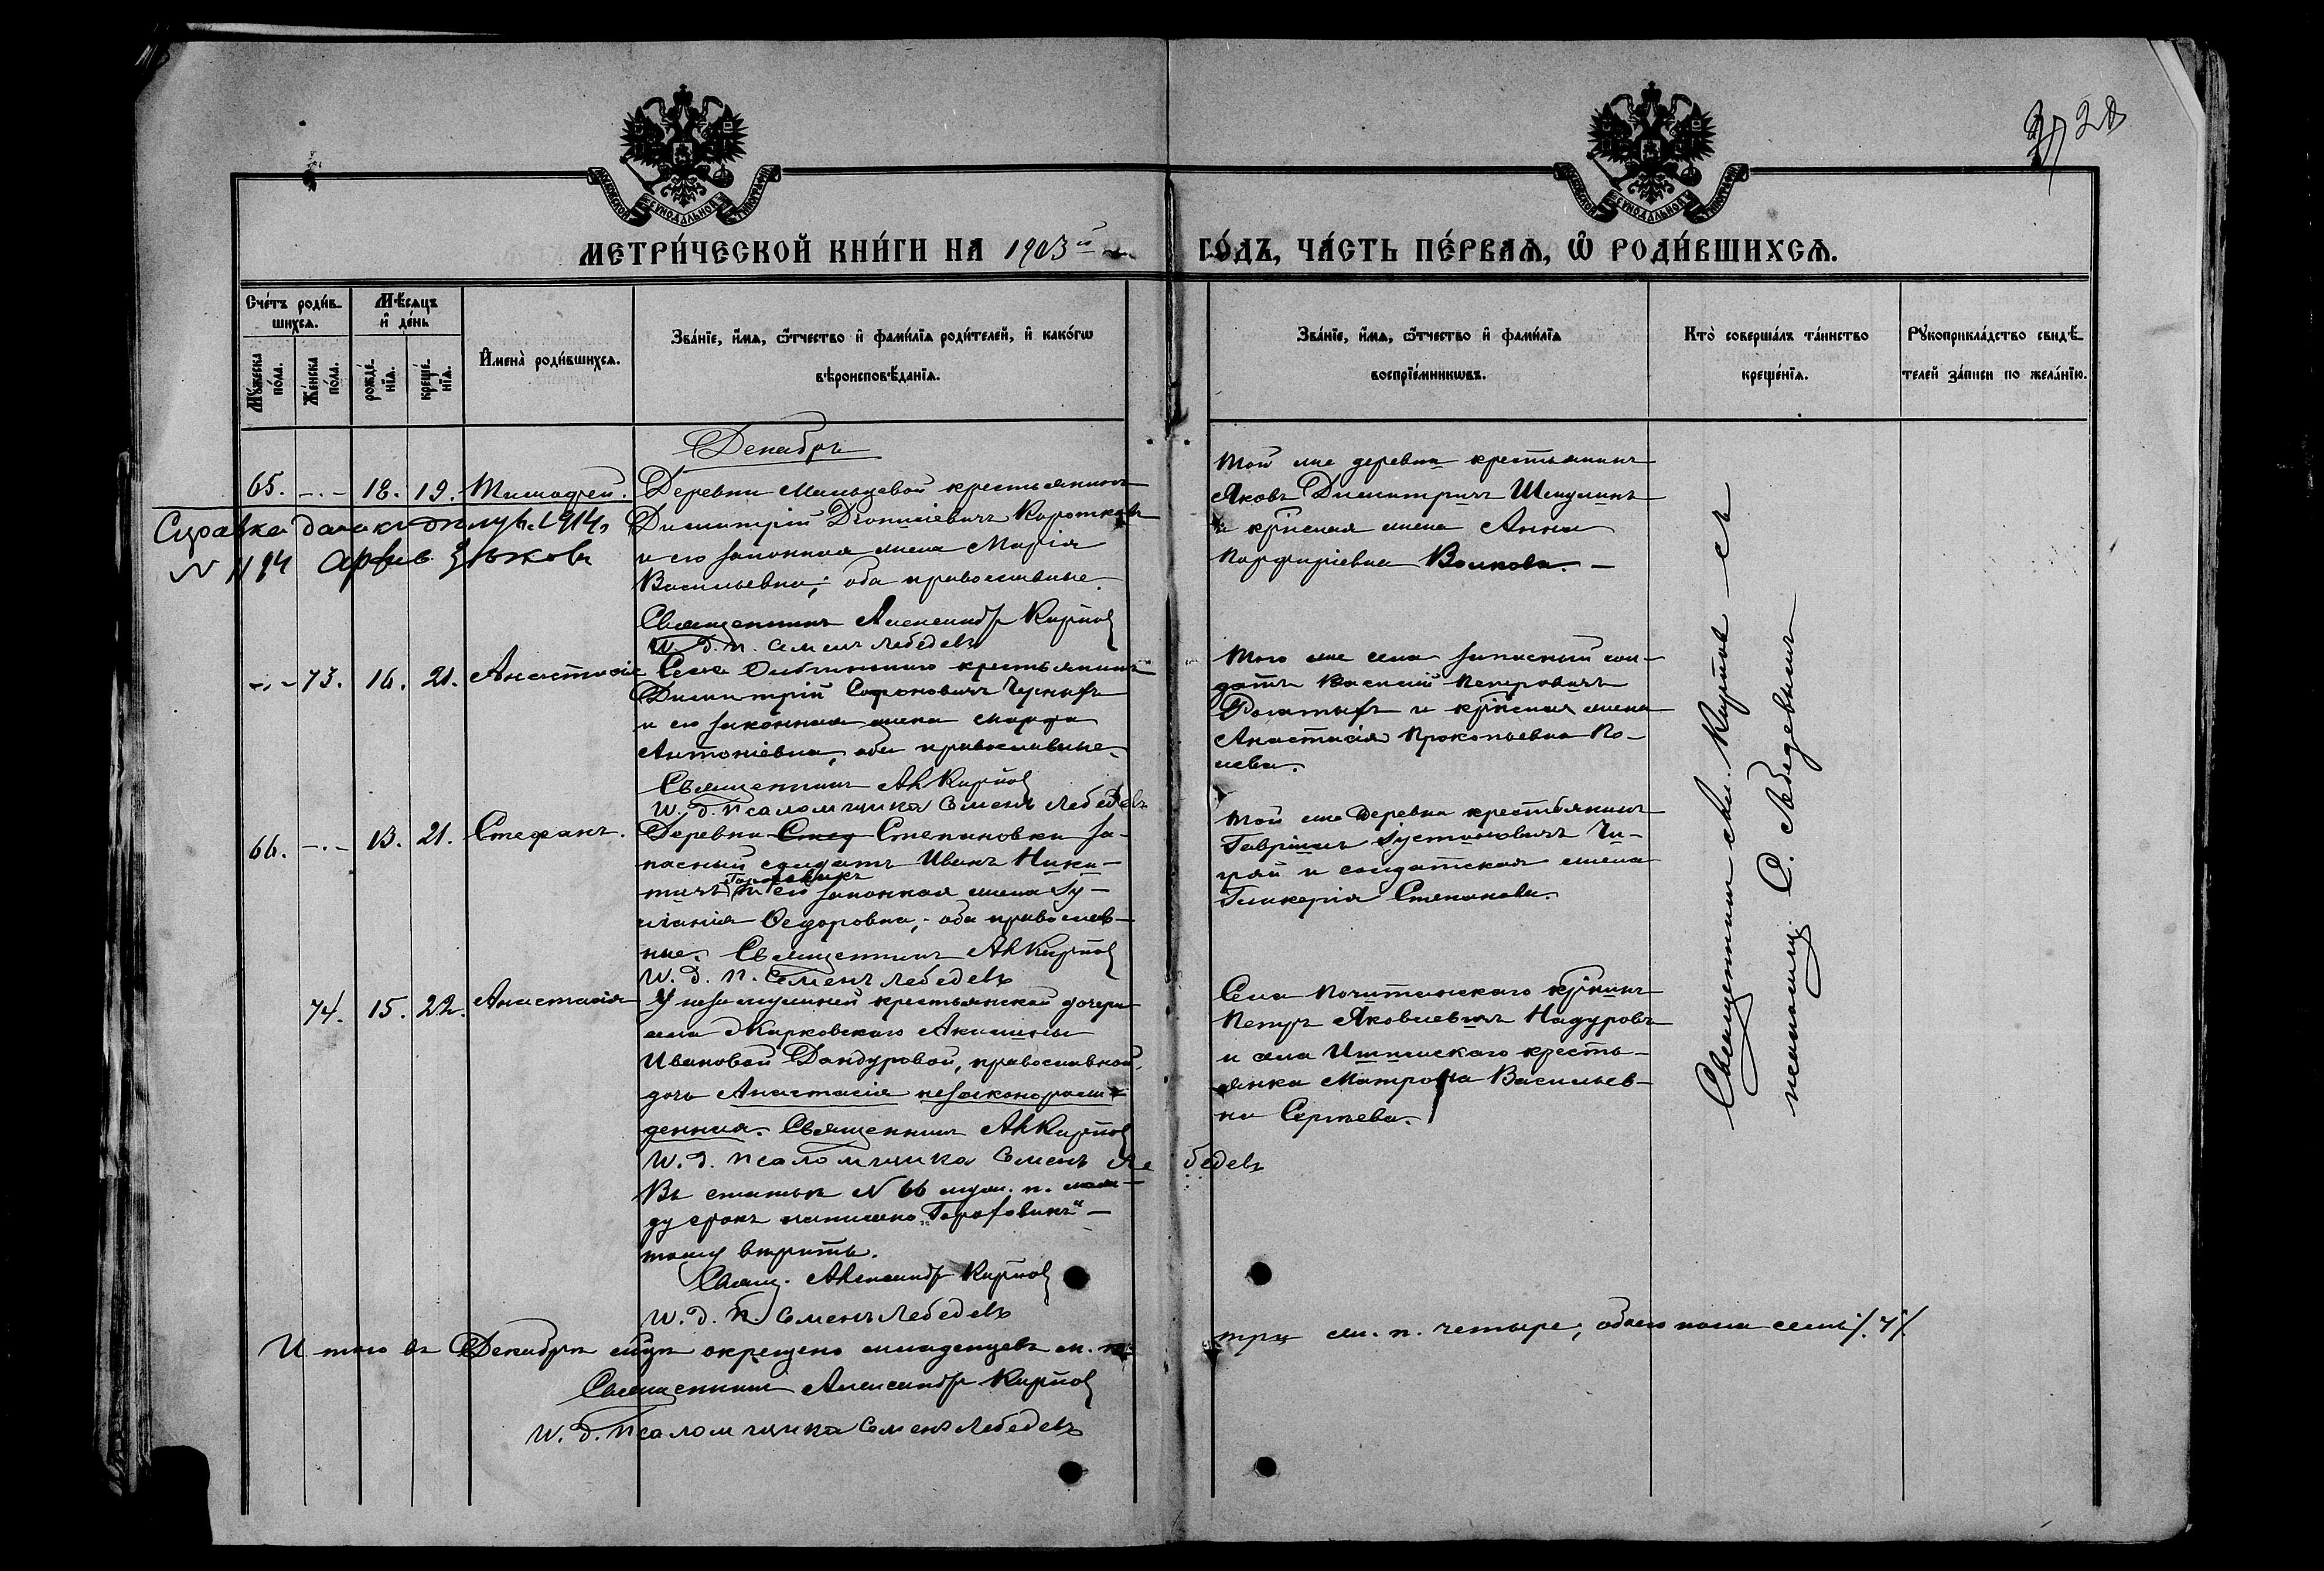 28
МЕТРИ́ЧЕСКОЙ КНИ́ГИ НА 1903й
ГО́ДЪ, ЧА́СТЬ ПЕ́РВАѦ, Ѽ РОДИ́ВШИХСѦ.
Сче́тъ роди́в-
шихсѧ.
Мѣ́сѧцъ
и҆ де́нь
Мꙋ́жеска
по́ла.
Же́нска
по́ла.
рожде́-
нїѧ.
креще́-
нїѧ.
И҆мена̀ роди́вшихсѧ.
Зва́нїе, и҆́мѧ, ѻ҆́тчество и҆ фами́лїѧ роди́телей, и҆ како́гѡ
вѣроисповѣ́данїѧ.
Зва́нїе, и҆́мѧ, ѻ҆́тчество и҆ фами́лїѧ
воспрїе́мникѡвъ.
Кто̀ соверша́лъ та́инство
креще́нїѧ.
Рꙋкоприкла́дство свидѣ́-
телей за́писи по жела́нїю.
Декабрь
65. -.- 18. 19. Тимофей.
Деревни крестьянинъ
Димитрій Діонисіевичъ Коротковъ
и его законная жена Марія
Васильевна; оба православные.
Священникъ Александр Карпов
И. д. п. Семенъ Лебедевъ
Той же деревни крестьянинъ
Яковъ Димитричъ
и крнская жена Анна
Порфиріевна Волкова. -
Справка дана 1914 г.
N 1194 Архив. Зыков
-.- 73. 16. 21. Анастасія
Села крестьянинъ
Димитрій Софоновичъ Черныхъ
и его законная жена Марфа
Антоніевна, оба православные.
Священникъ Ал Карпов
И. д. псаломщика Семенъ Лебедевъ
Того же села запасный сол-
датъ Василій Петровичъ
Рогатыхъ и крнская жена
Анастасія Прокопьевна По-
лева.
66. -.- 13. 21. Стефанъ.
Деревни Степановки за-
пасный солдатъ Иванъ Ники-
тичъ и его законная жена Іу-
ліанія Ѳедоровна; оба православ-
ные. Священникъ Ал Карпов
И. д. п. Семенъ Лебедевъ
Той же деревни крестьянинъ
Гавріилъ Іустиновичъ Чи-
и солдатская жена
Гликерія Степанова.
74. 15. 22. Анастасія
У незамужней крестьянской дочери
села Жарковскаго Акилины
Ивановой Дандуровой, православной,
дочь Анастасія незаконорож-
денная. Священникъ Ал Карпов
И. д. псаломщика Семенъ Лебедевъ
Села Почитанскаго крнинъ
Петръ Яковлевичъ Надуровъ
и села Ишимскаго кресть-
янка Матрона Васильев-
на Сергѣева.
Въ статьѣ N 66 муж. п. меж-
ду строкъ написано „Горховикъ" -
тому вѣрить.
Свящ. Александр Карпов
И. д. п. Семенъ Лебедевъ
Священникъ Ал. Карпов съ
псаломщ. С. Лебедевымъ
Итого въ Декабрѣ мцѣ окрещено младенцевъ м. п.
три ж. п. четыре, обоего пола семь /. 7 /.
Священникъ Александр Карпов
И. д. псаломщика Семенъ Лебедевъ